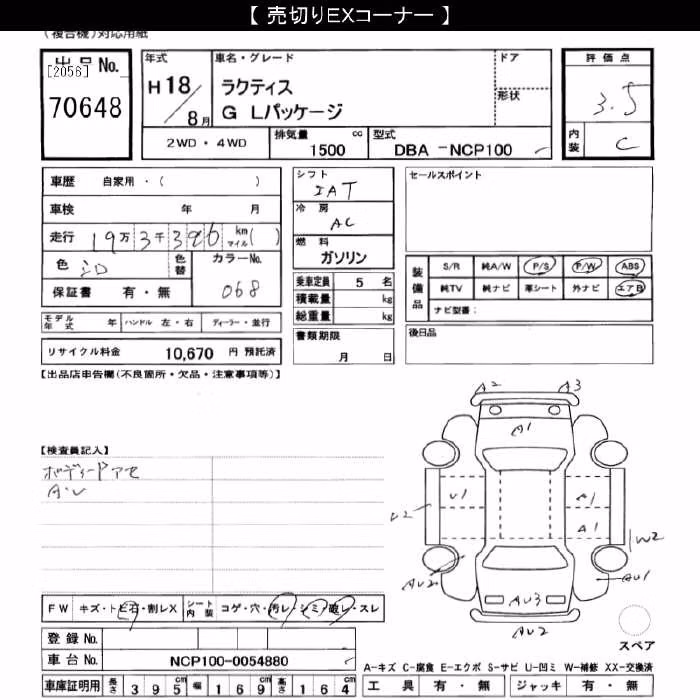 【 売切りEXコーナー 】
(複合機)対応用紙
出品No.
[2056]
70648
年式
H18/8月
車名・グレード
ラクティス
G Lパッケージ
ドア
形状
評価点
3.5
内装
C
2WD・4WD
排気量 cc
1500
型式
DBA -NCP100
車歴 自家用・( )
車検 年 月
走行 19万3千396 km マイル( )
色
色替
カラーNo.
068
保証書 有・無
シフト
IAT
冷房
AC
燃料
ガソリン
乗車定員 5 名
積載量 kg
総重量 kg
書類期限
月 日
セールスポイント
装備品
S/R 純A/W P/S P/W ABS
純TV 純ナビ 革シート 外ナビ エアB
ナビ型番:
後日品
モデル年式 年 ハンドル 左・右 ディーラー・並行
リサイクル料金 10,670 円 預託済
【出品店申告欄(不良箇所・欠品・注意事項等)】
【検査員記入】
A・U
A2 A3
A1
U1 A1
A1
U2
W2
AU2
AU1
AU3
AU2
スペア
FW キズ・トビ石・割レX シート内装 コゲ・穴・汚レ・シミ・破レ・スレ
登録No.
車台No. NCP100-0054880
A-キズ C-腐食 E-エクボ S-サビ U-凹ミ W-補修 XX-交換済
車庫証明用 長さ 395cm 幅 169cm 高さ 164cm
工具 有・無 ジャッキ 有・無